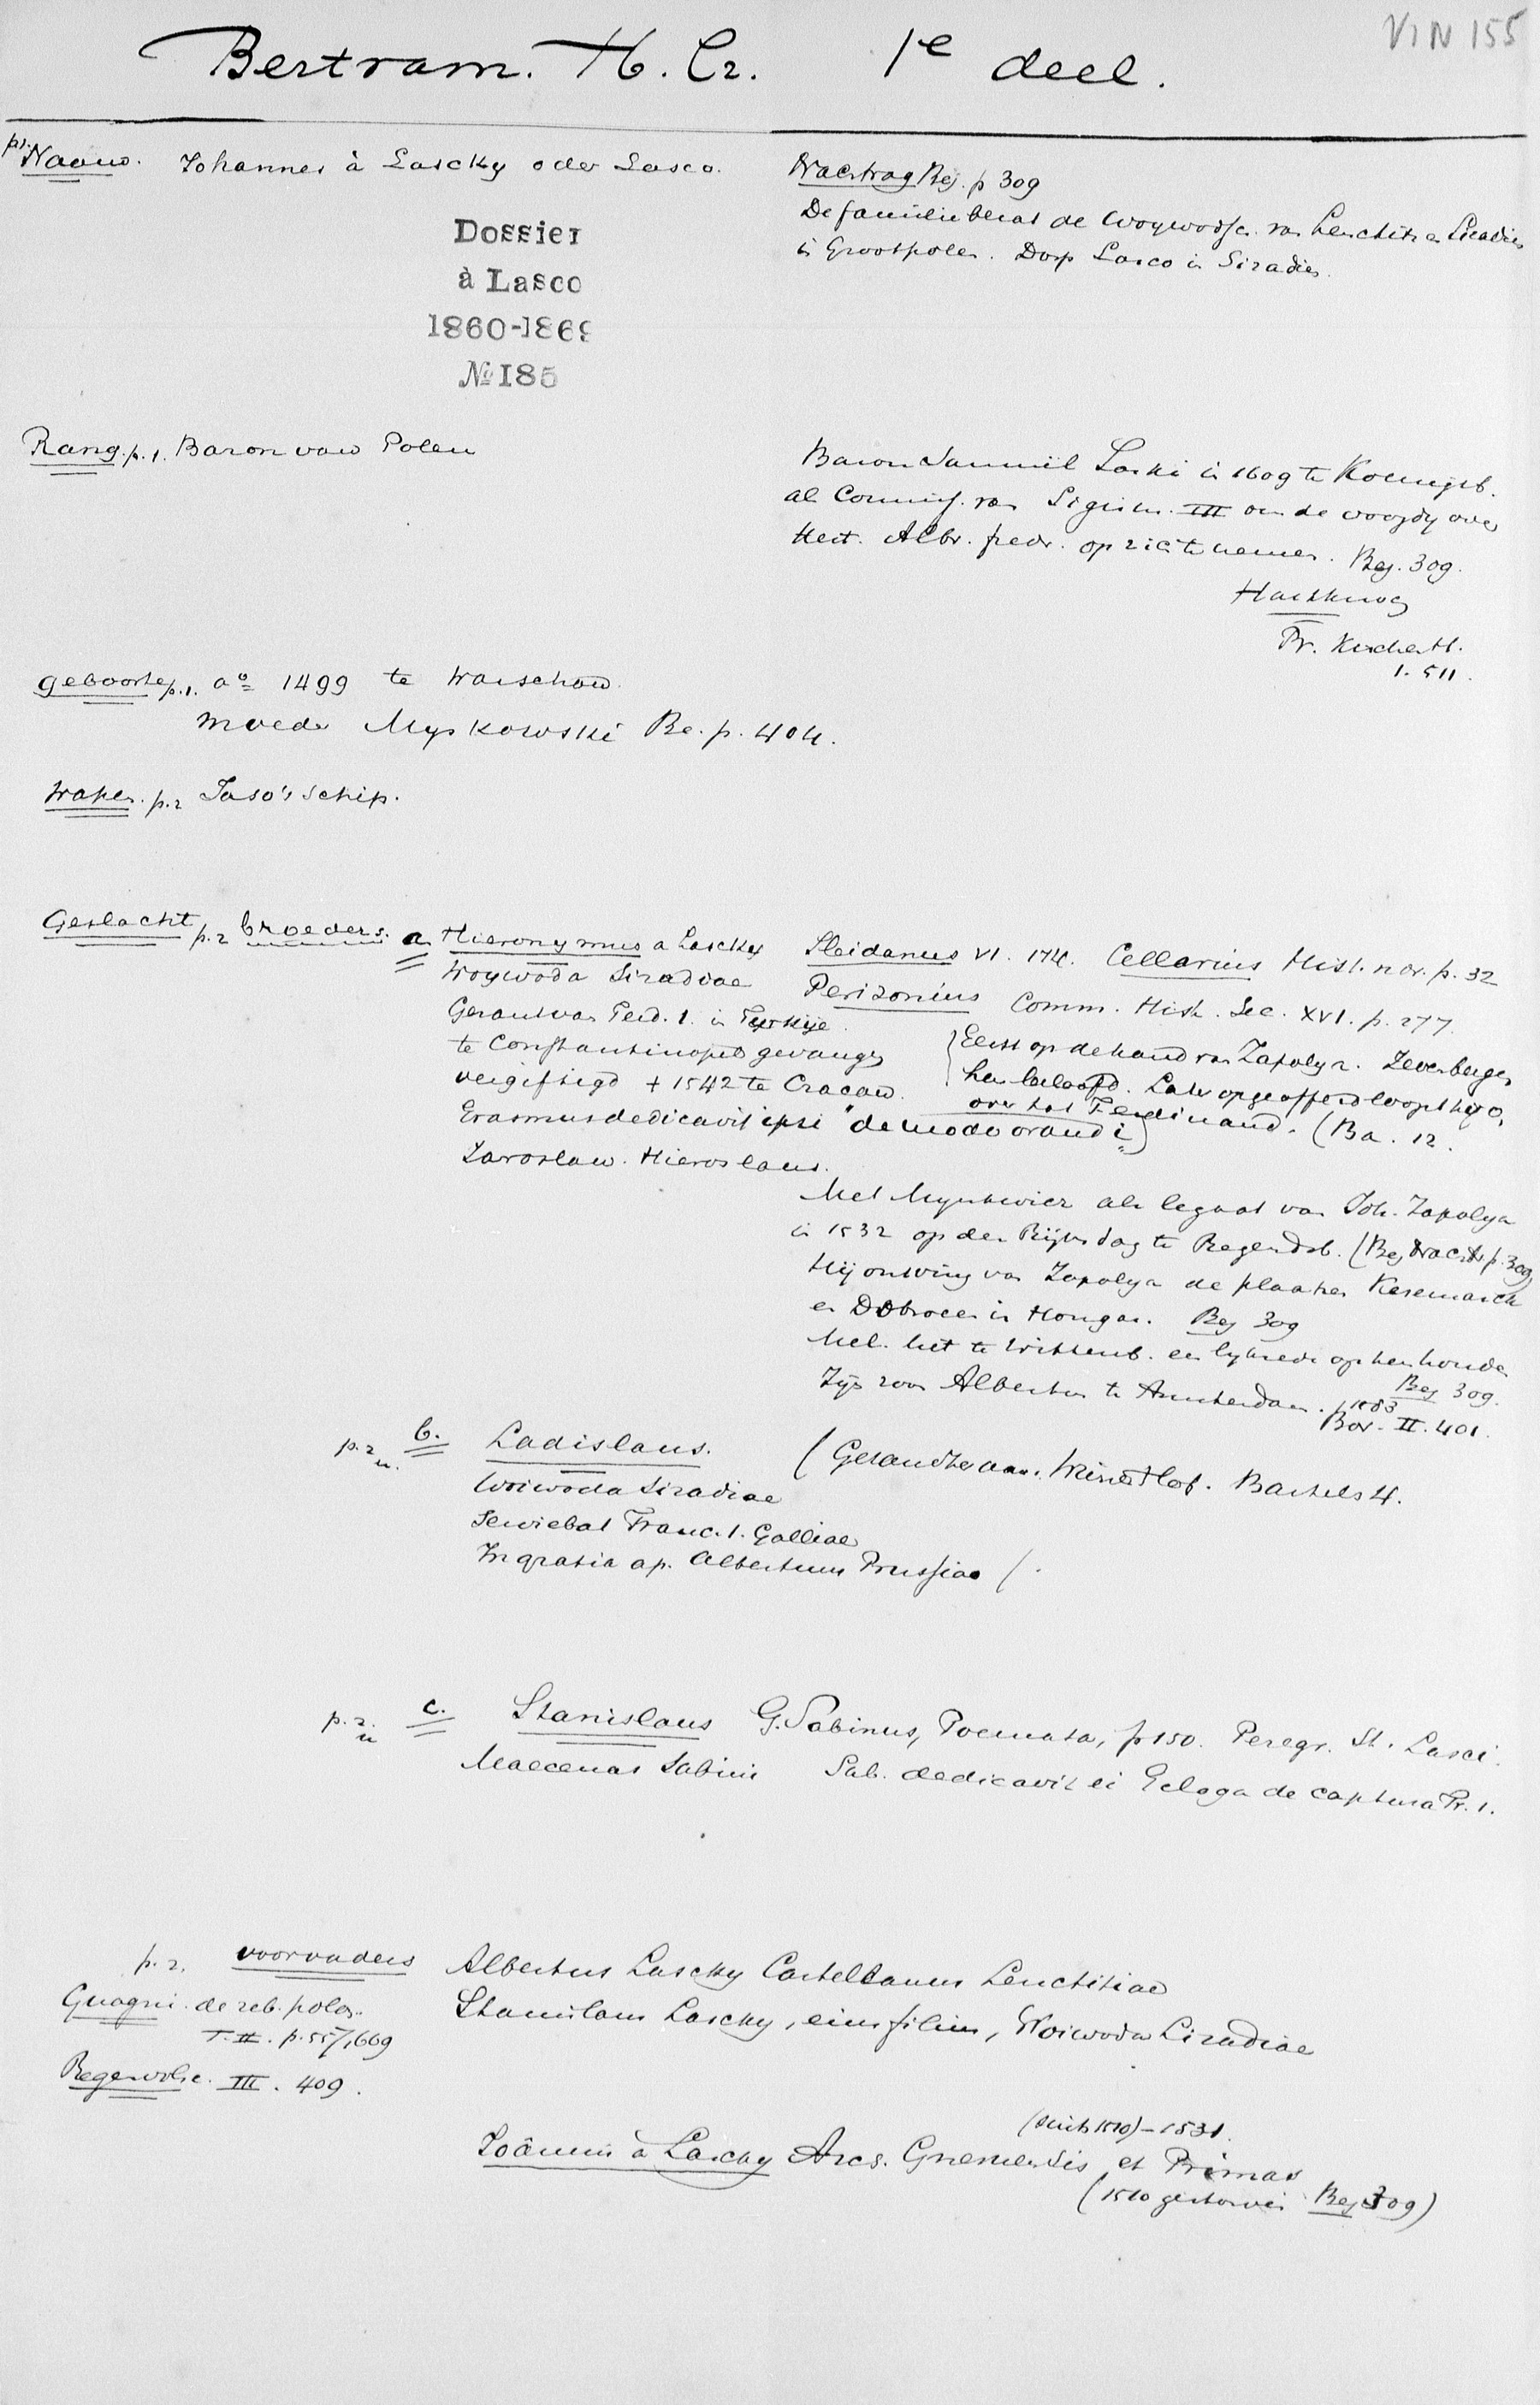 VIN 155
Bertram. H. Cr. 1e deel.
p1. Naam. Johannes à Lascky oder Lasco.
Nachtrag Bej. p 309
De familie bezat de Woywodsch. van Lenchitz en Siradien
in Grootpolen. Dorp Lasco in Siradien.
Dossier
à Lasco
1860-1869
No 185
Rang. p. 1. Baron van Polen
Baron Samuel Laski in 1609 te Koenigsb.
als Commiss. van Sigism. III om de voogdy over
Hert. Albr. Fredr. op zich te nemen. Bej. 309.
Hartknoch
Pr. Kircheh.
1. 511.
geboorte p. 1. ao 1499 te Warschau.
moeder Myskowski Be. p. 404.
Wapen. p. 2 Jaso's schip.
Geslacht p. 2 broeders. a Hieronymus a Lascky
Woywoda Siradiae
Gezant van Ferd. 1. in Turkije.
te Constantinopel gevangen
vergiftigd + 1542 te Cracau.
Erasmus dedicavit ipsi "de modo orandi"
Jaroslaw. Hieroslaus.
Sleidanus VI. 174. Cellarius Hist. nov. p. 32
Perizonius Comm. Hist. Sec. XVI. p. 277.
Eerst op de hand van Zapolya. Zevenbergen
hem beloofd. Later opgeofferd loopt hij
over tot Ferdinand. (Ba. 12.
Met als legaat van Joh. Zapolya
in 1532 op den Rijksdag te Regensb. (Bej Nachtr p. 309
Hij ontving van Zapolya de plaatsen Kesemarck
en Dobrocen in Hongar. Bej 309
Mel. liet te Wittenb. een lykrede op hem houden
Bej 309.
Zijn zoon Albertus te Amsterdam. 1583
Bor. II. 401.
p. 2 b. Ladislaus.
Woiwoda Siradiae
Serviebat Franc. 1. Galliae
In gratia ap. Albertum Prussiae /.
(Gesandter aan. Wiener Hof. Bartels 4.
p. 2. c. Stanislaus G. Sabinus, Poemata, p 150. Peregr. St. Lasci.
Maecenas Sabini Sab. dedicavit ei Ecloga de captura Fr. 1.
p. 2. voorvaders Albertus Lascky Castellanus Lenchitiae
Guagni. de reb. polon. Stanislaus Lascky, eius filius, Woiwoda Siradiae
T. II. p. 557, 669
Regenvolsc. III. 409.
(sinds 1510) – 1531.
Joannis à Lascky Arcs. Gnesnensis et Primas
(1510 gestorven Bej 309)